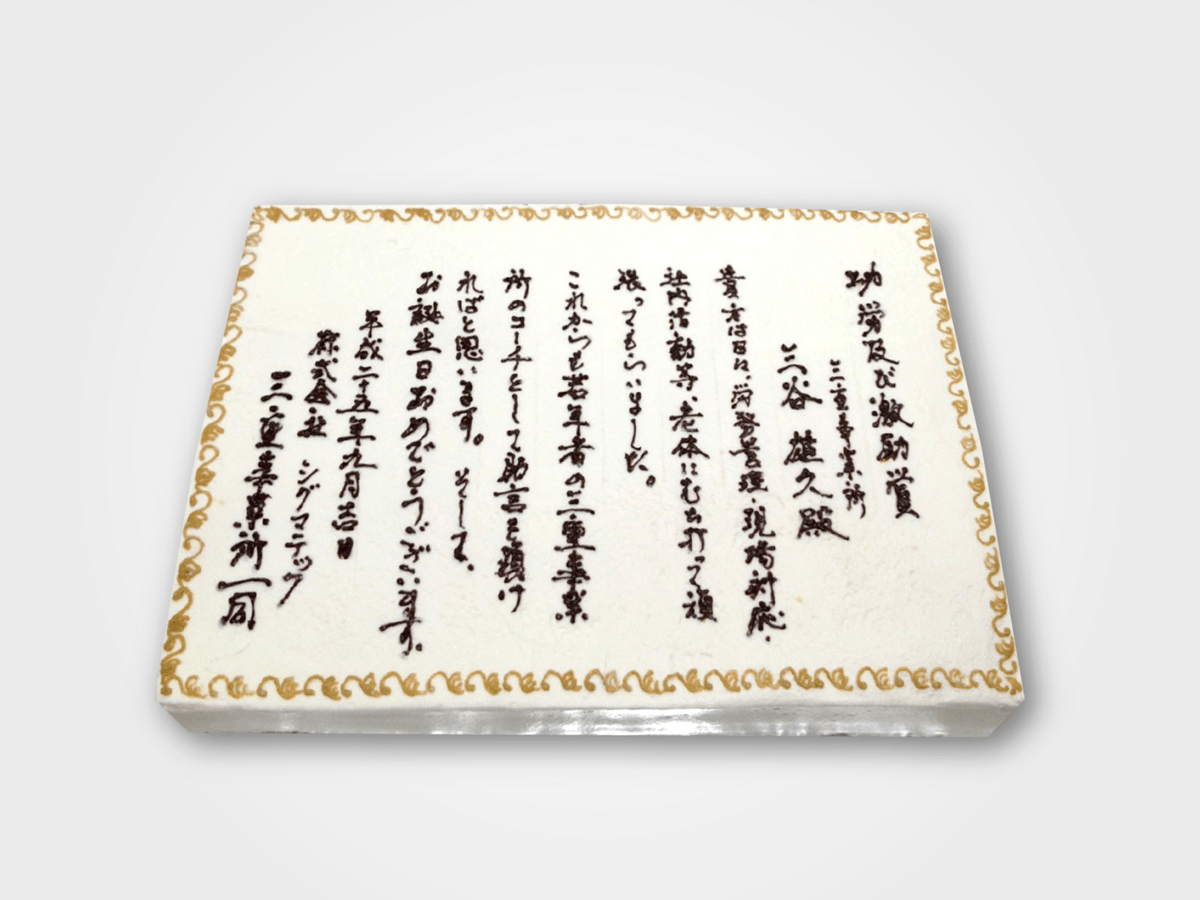 功労及び激励賞
三重事業所
三谷 雄久殿
貴方は日々、労務管理・現場対応・
社内活動等、老体にむち打って頑
張ってもらいました。
これからも若年者の三重事業
所のコーチとして助言を頂け
ればと思います。そして、
お誕生日おめでとうございます。
平成二十五年九月吉日
株式会社 シグマテック
三重事業所一同